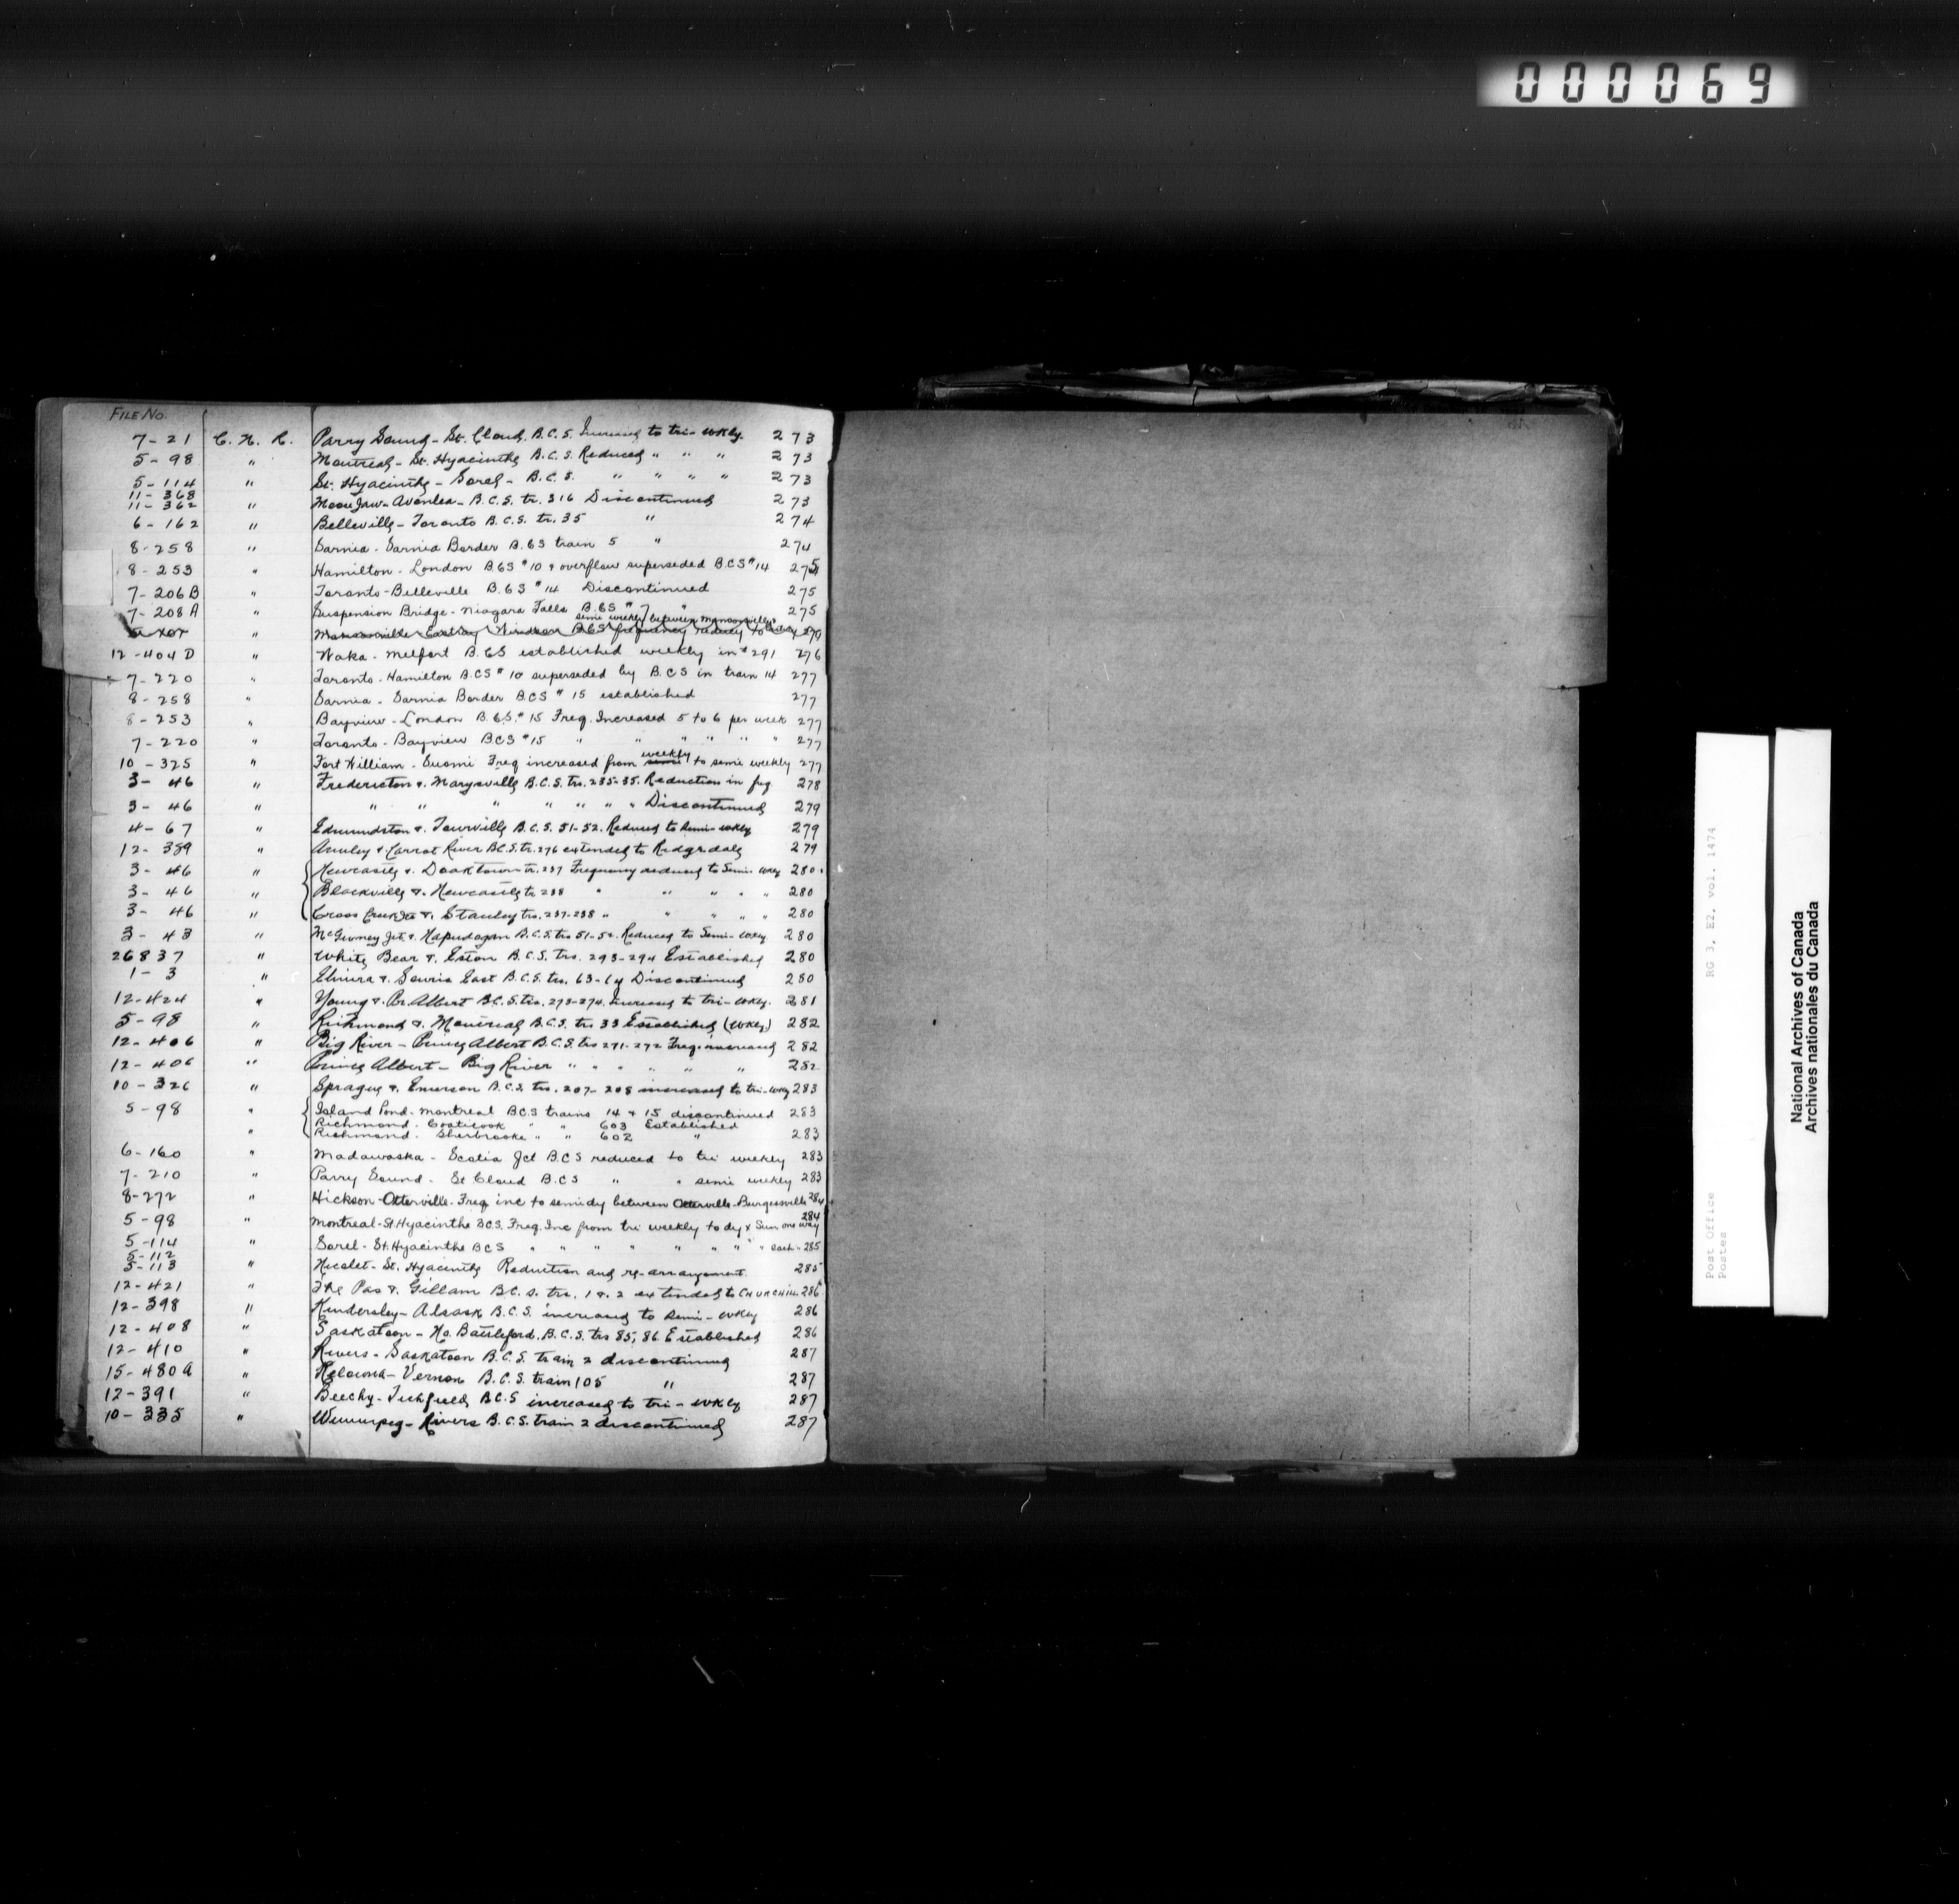 000069
FILE NO.
7-21 C. N. R. Parry Sound - St. Cloud, B.C.S. Increased to tri-wkly. 273
5-98 " Montreal - St. Hyacinthe B.C.S. Reduced " " " 273
5-114 " St. Hyacinthe - Sorel - B.C.S. " " " " 273
11-368
11-362 " Moose Jaw - Avonlea - B.C.S. tr. 316 Discontinued 273
6-162 " Belleville - Toronto B.C.S. tr. 35 " 274
8-258 " Sarnia - Sarnia Border B.CS train 5 " 274
8-253 " Hamilton - London B.CS #10 & overflow superseded B.CS #14 275
7-206B " Toronto - Belleville B.CS #14 Discontinued 275
7-208A " Suspension Bridge - Niagara Falls B.CS #7 " 275
semi weekly between Mansonville
" Mansonville Eastray Windsor B.CS frequency reduced to
12-404D " Naka - Melfort B.CS established weekly in #291 276
7-220 " Toronto - Hamilton B.CS #10 superseded by B.CS in train 14 277
8-258 " Sarnia - Sarnia Border B.CS #15 established 277
8-253 " Bayview - London B.CS. #15 Freq. Increased 5 to 6 per week 277
7-220 " Toronto - Bayview B.CS #15 " " " " " " 277
weekly
10-325 " Fort William - Suomi Freq increased from semi to semi weekly 277
3-46 " Fredericton & Marysville B.C.S. trs. 235-35. Reduction in frq 278
3-46 " " " " " " " " Discontinued 279
4-67 " Edmundston & Tourville B.C.S. 51-52. Reduced to semi-wkly 279
12-389 " Aunley & Carrot River B.C.S. tr. 276 extended to Ridgedale 279
3-46 " Newcastle & Doaktown tr. 237 Frequency reduced to Semi-wkly 280
3-46 " Blackville & Newcastle tr 238 " " " " " 280
3-46 " Cross Creek Jct & Stanley trs. 237-238 " " " " " 280
3-43 " McGivney Jct. & Napadogan B.C.S. trs 51-52. Reduced to Semi-wkly 280
26837 " White Bear & Eston B.C.S. trs. 293-294 Established 280
1-3 " Elmira & Souris East B.C.S. trs. 63-64 Discontinued 280
12-424 " Young & Pr. Albert B.C.S. trs. 273-274. Increased to tri-wkly. 281
5-98 " Richmond & Montreal B.C.S. trs 33 Established (wkly) 282
12-406 " Big River - Prince Albert B.C.S. trs 271-272 Freq. increased 282
12-406 " Prince Albert - Big River " " " " " " 282
10-326 " Sprague & Emerson B.C.S. trs. 207-208 increased to tri-wkly 283
5-98 " Island Pond - Montreal B.C.S trains 14 & 15 discontinued 283
Richmond - Coaticook " " 603 Established
" Richmond - Sherbrooke " " 602 " 283
6-160 " Madawaska - Scotia Jct B.C.S reduced to tri weekly 283
7-210 " Parry Sound - St Cloud B.C.S " " semi weekly 283
8-272 " Hickson - Otterville. Freq inc to semidy between Otterville - Burgessville 284
5-98 " Montreal - St. Hyacinthe B.C.S. Freq. Inc from tri weekly to dy x Sun one way 284
5-114 " Sorel - St. Hyacinthe B.C.S " " " " " " " " each " 285
5-112
5-113 " Nicolet - St. Hyacinthe Reduction and re-arrangement. 285
12-421 " The Pas & Gillam B.C.S. trs. 1 & 2 extended to CHURCHILL 286
12-398 " Kindersley - Alsask B.C.S. increased to semi-wkly 286
12-408 " Saskatoon - No. Battleford. B.C.S. trs 85, 86 Established 286
12-410 " Rivers - Saskatoon B.C.S. train 2 discontinued 287
15-480A " Kelowna - Vernon B.C.S. train 105 " 287
12-391 " Beechy - Tichfield B.C.S increased to tri-wkly 287
10-335 " Winnipeg - Rivers B.C.S. train 2 discontinued 287
RG 3, E2, vol. 1474
Post Office
Postes
National Archives of Canada
Archives nationales du Canada